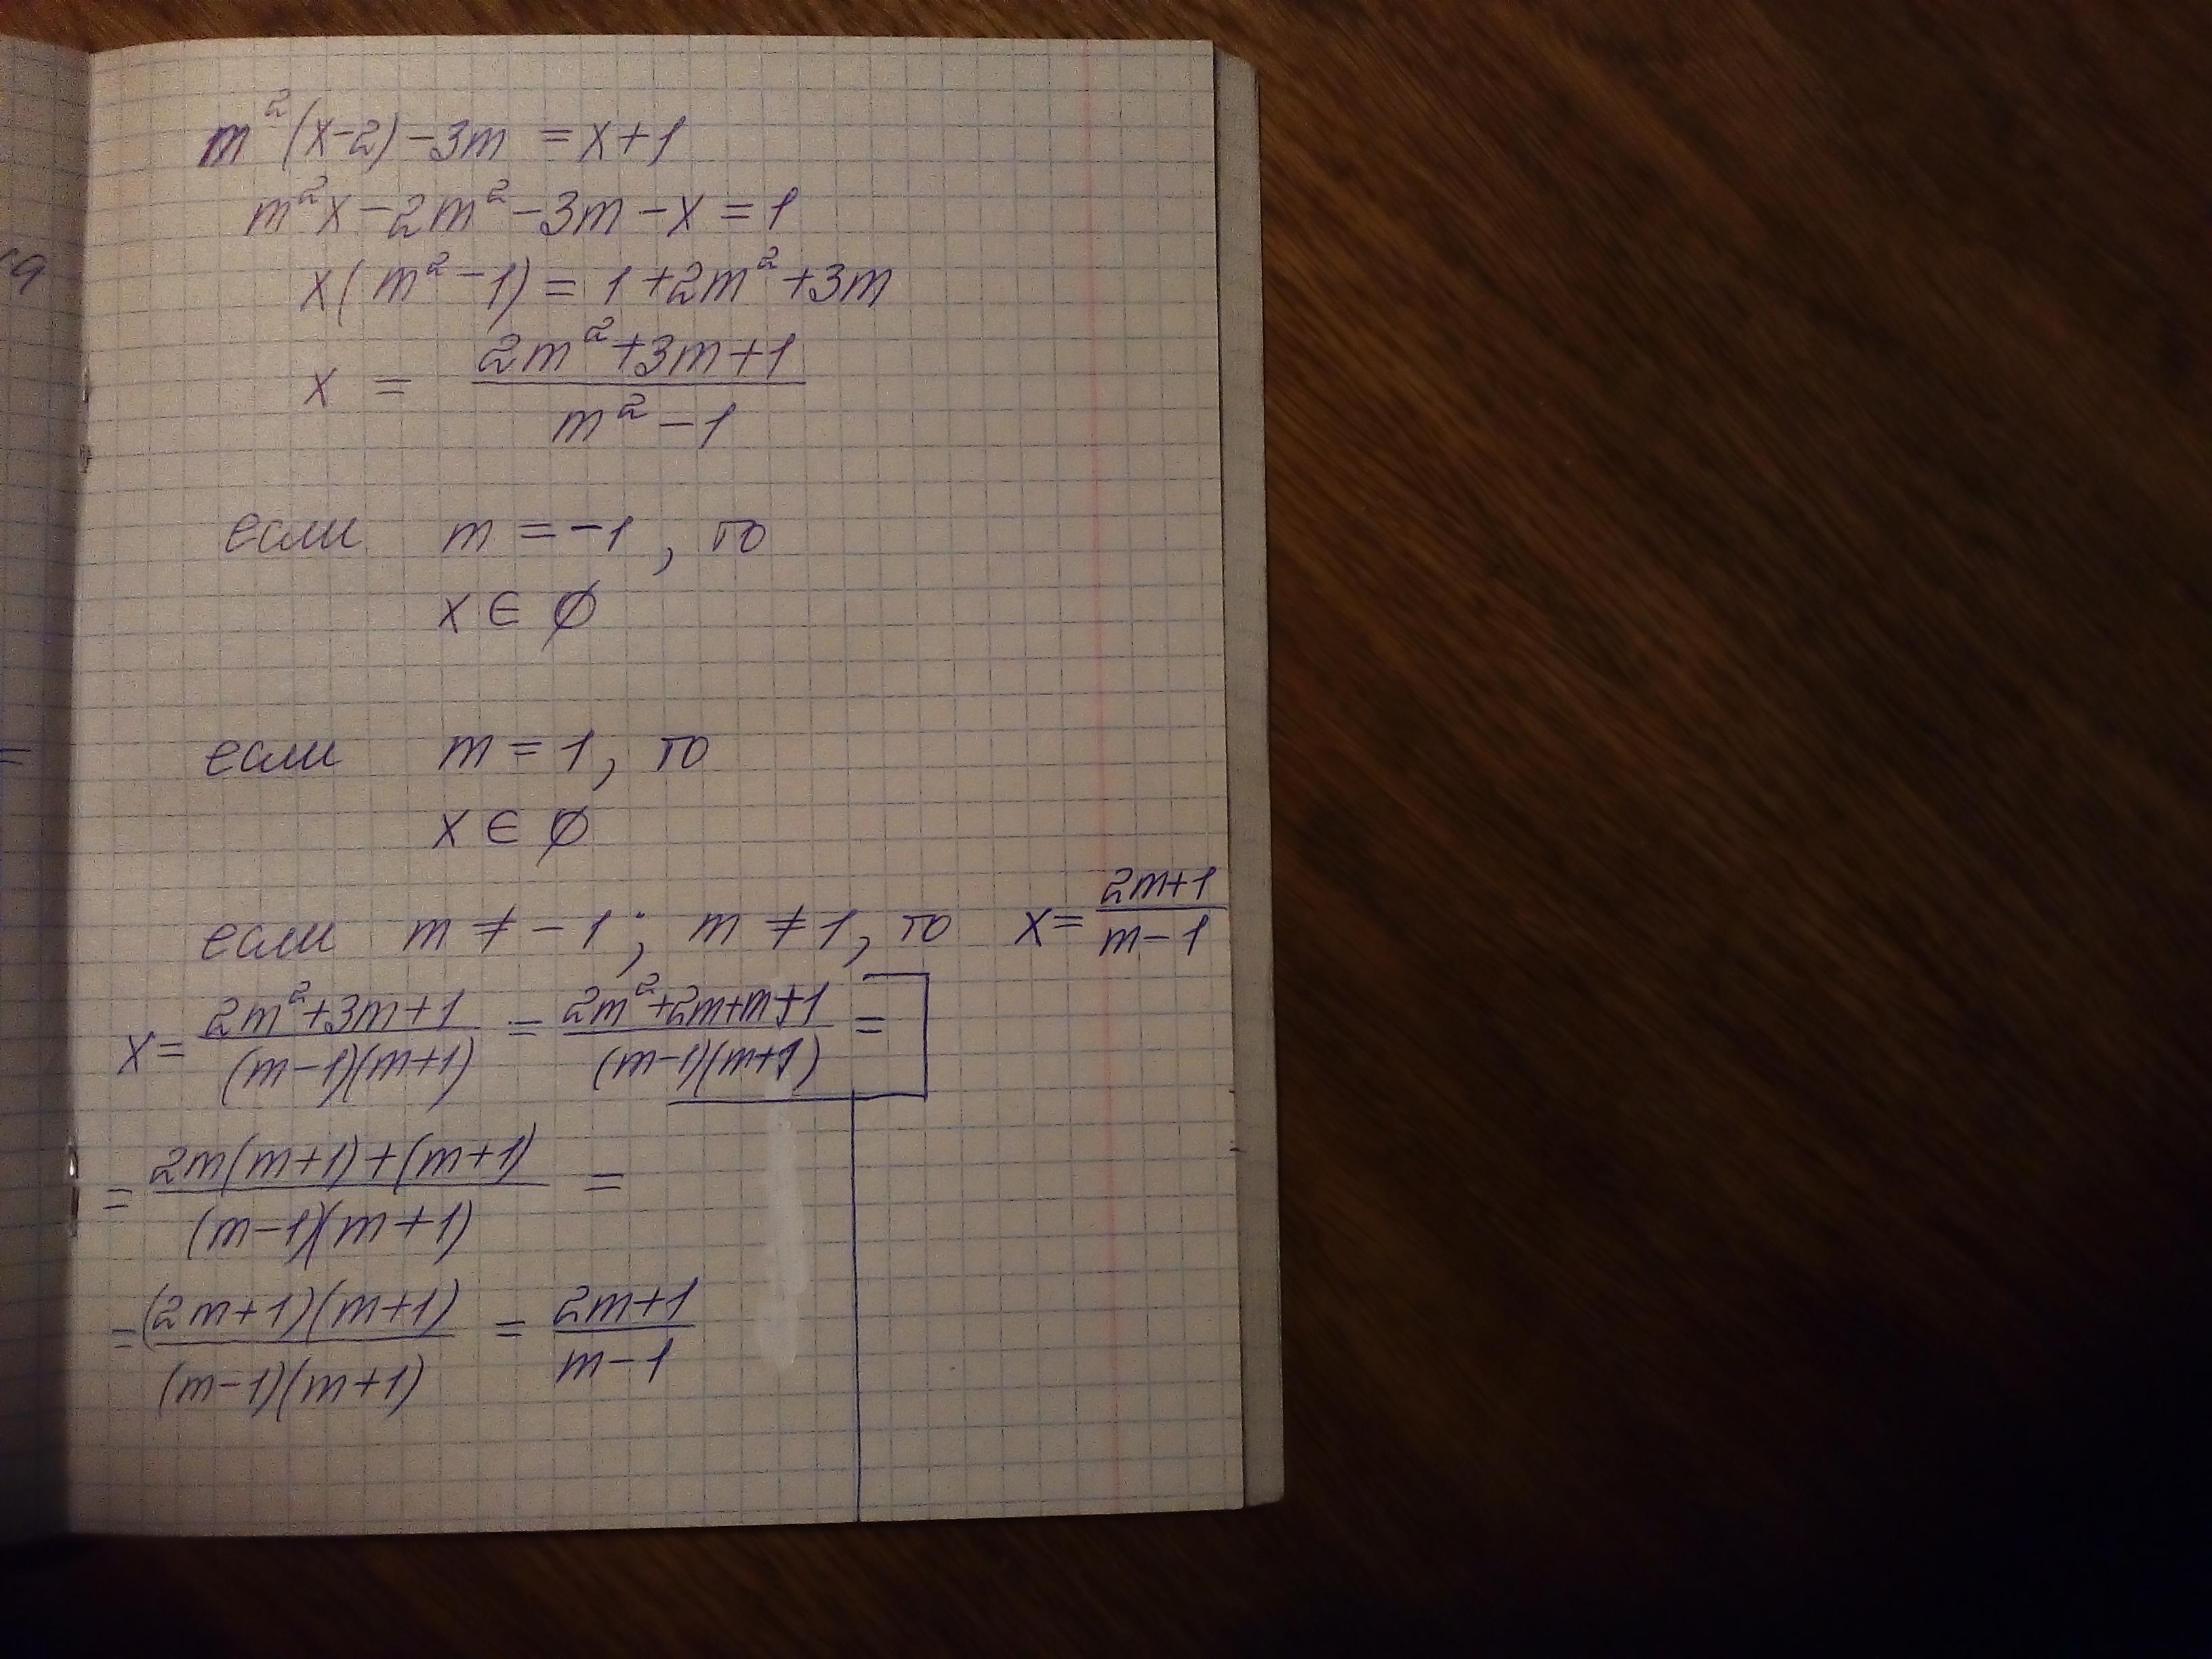 m²(x-2)-3m = x+1
m²x-2m²-3m-x=1
x(m²-1)=1+2m²+3m
x = (2m²+3m+1)/(m²-1)
если m=-1, то
x∈∅
если m=1, то
x∈∅
если m≠-1; m≠1, то x=(2m+1)/(m-1)
x=(2m²+3m+1)/((m-1)(m+1)) = (2m²+2m+m+1)/((m-1)(m+1)) =
= (2m(m+1)+(m+1))/((m-1)(m+1)) =
= ((2m+1)(m+1))/((m-1)(m+1)) = (2m+1)/(m-1)